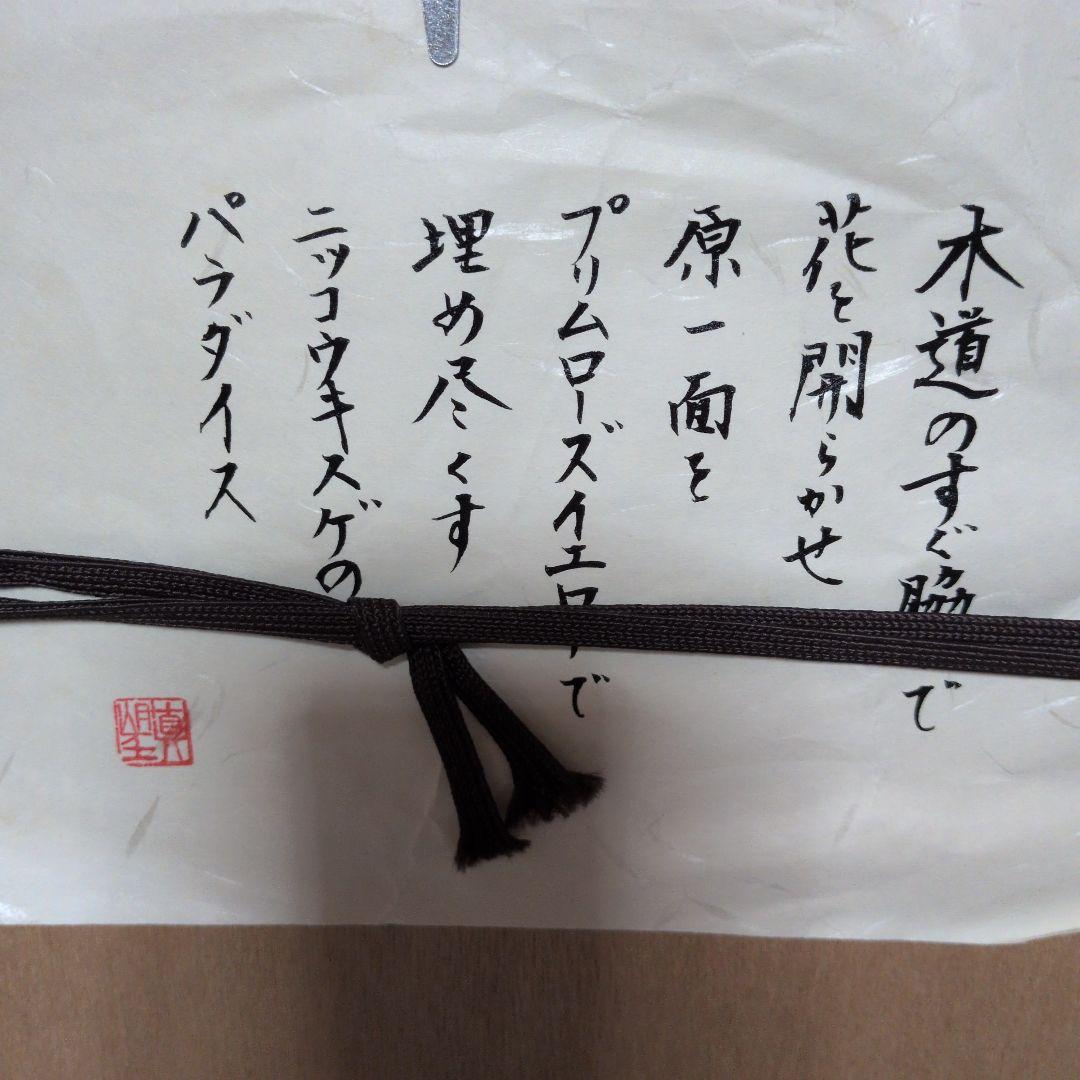 木道のすぐ脇で
花を開らかせ
原一面を
プリムローズイエローで
埋め尽くす
ニッコウキスゲの
パラダイス